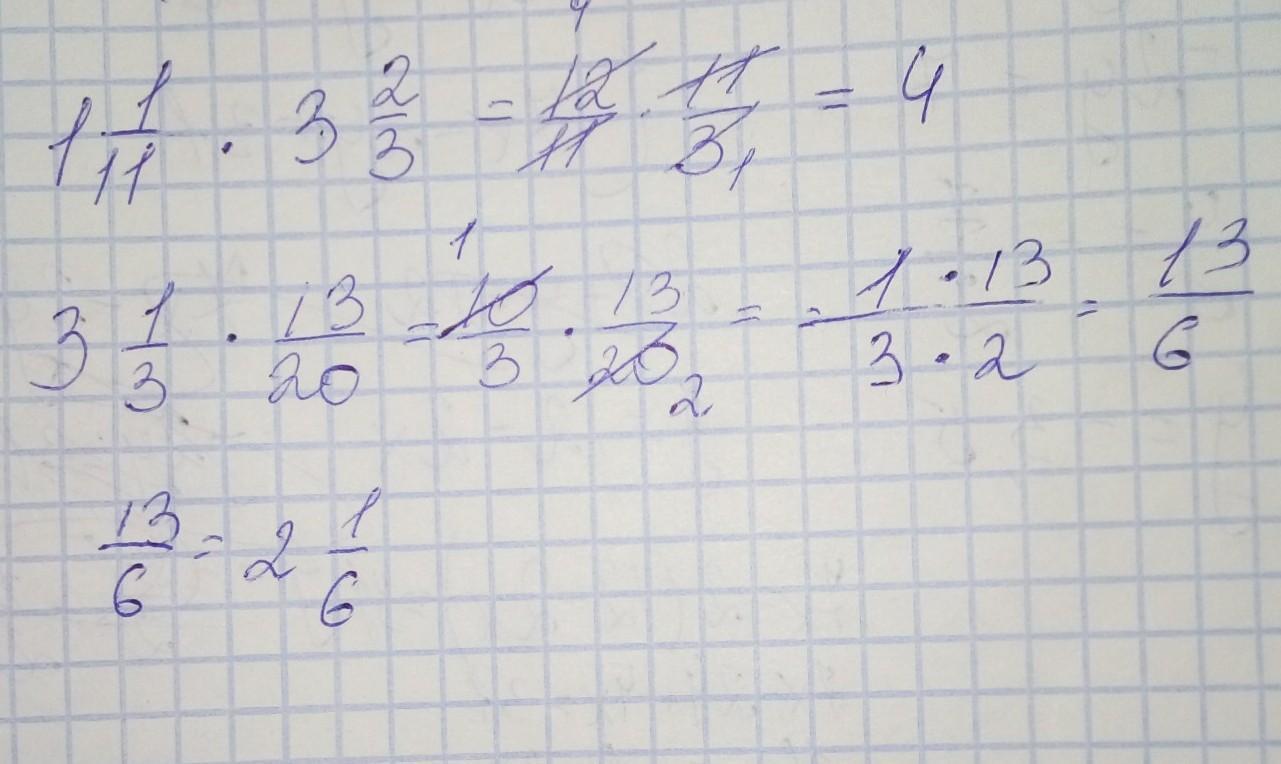 1 1/11 · 3 2/3 = 12/11 · 11/3 = 4
3 1/3 · 13/20 = 10/3 · 13/20 = = 1 · 13/3 · 2 = 13/6
13/6 = 2 1/6